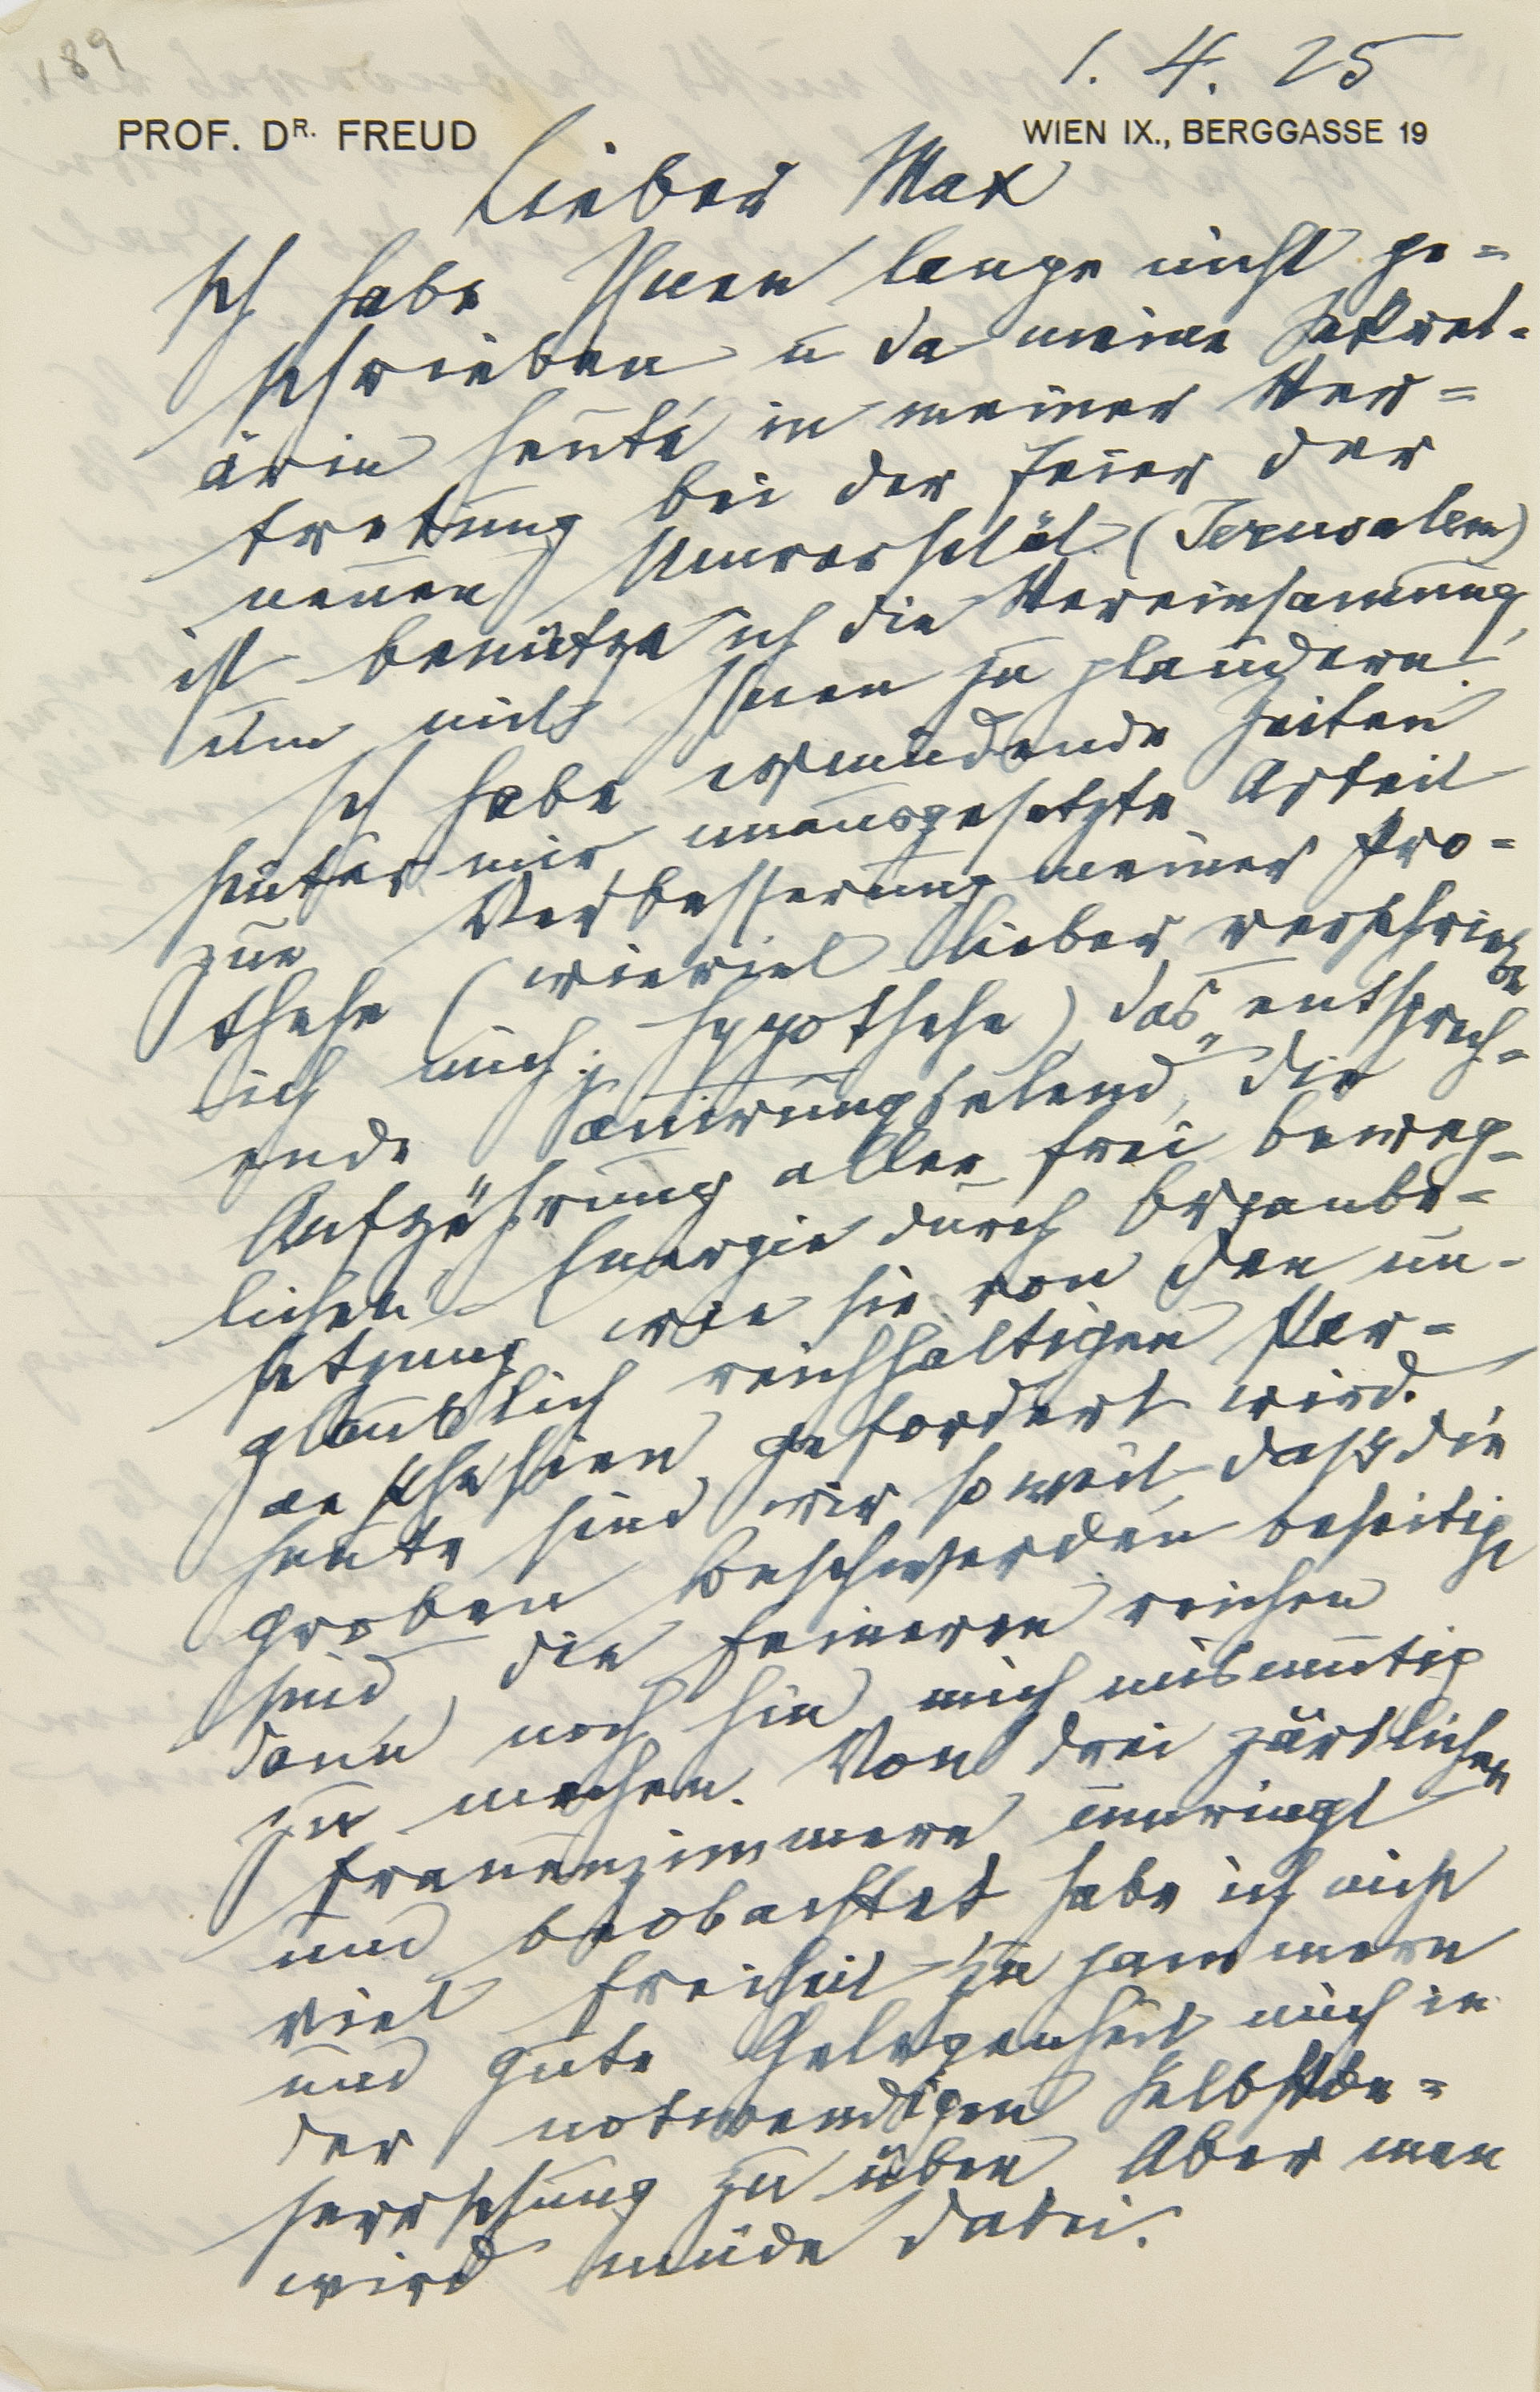 189
1. 4. 25
PROF. DR. FREUD
WIEN IX., BERGGASSE 19
Lieber Max
Ich habe Ihnen lange nicht ge=
schrieben u da meine Sekret=
ärin heute in meiner Ver=
tretung bei der Feier der
neuen Universität (Jerusalem)
ist benütze ich die Vereinsamung,
um mit Ihnen zu plaudern.
Ich habe ermüdende Zeiten
hinter mir, unausgesetzte Arbeit
zur Verbesserung meiner Pro=
these (wieviel lieber verschriebe
ich mich: Hypothese) das entsprech=
ende "
Aufzehrung aller frei beweg=
lichen Energie durch Organbe=
setzung wie sie von den un=
glaublich reichhaltigen Par=
aesthesien gefordert wird.
Heute sind wir so weit, daß die
groben Beschwerden beseitigt
sind, die feineren reichen
dann noch hin mich mismutig
zu machen. Von drei zärtlichen
Frauenzimmern umringt
und beobachtet habe ich nicht
viel Freiheit zu jammern
und gute Gelegenheit mich in
der notwendigen Selbstbe=
herrschung zu üben. Aber man
wird müde dabei.